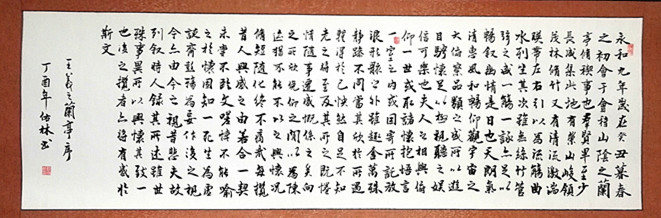 永和九年歲在癸丑暮春
之初會于會稽山陰之蘭
亭脩稧事也羣賢畢至少
長咸集此地有崇山峻領
茂林脩竹又有清流激湍
暎帶左右引以為流觴曲
水列坐其次雖無絲竹管
弦之盛一觴一詠亦足以
暢叙幽情是日也天朗氣
清惠風和暢仰觀宇宙之
大俯察品類之盛所以遊
目騁懷足以極視聽之娛
信可樂也夫人之相與俯
仰一世或取諸懷抱悟言
一室之内或因寄所託放
浪形骸之外雖趣舍萬殊
靜躁不同當其欣於所遇
暫得於己快然自足不知
老之將至及其所之既惓
情隨事遷感慨係之矣向
之所欣俛仰之間以為陳
迹猶不能不以之興懷況
脩短隨化終不痛哉每攬
昔人興感之由若合一契
未嘗不臨文嗟悼不能喻
之於懷固知一死生為虛
誕齊彭殤為妄作後之視
今亦由今之視昔悲夫故
列叙時人錄其所述雖世
殊事異所以興懷其致一
也後之攬者亦將有感於
斯文
王羲之蘭亭序
丁酉年林書